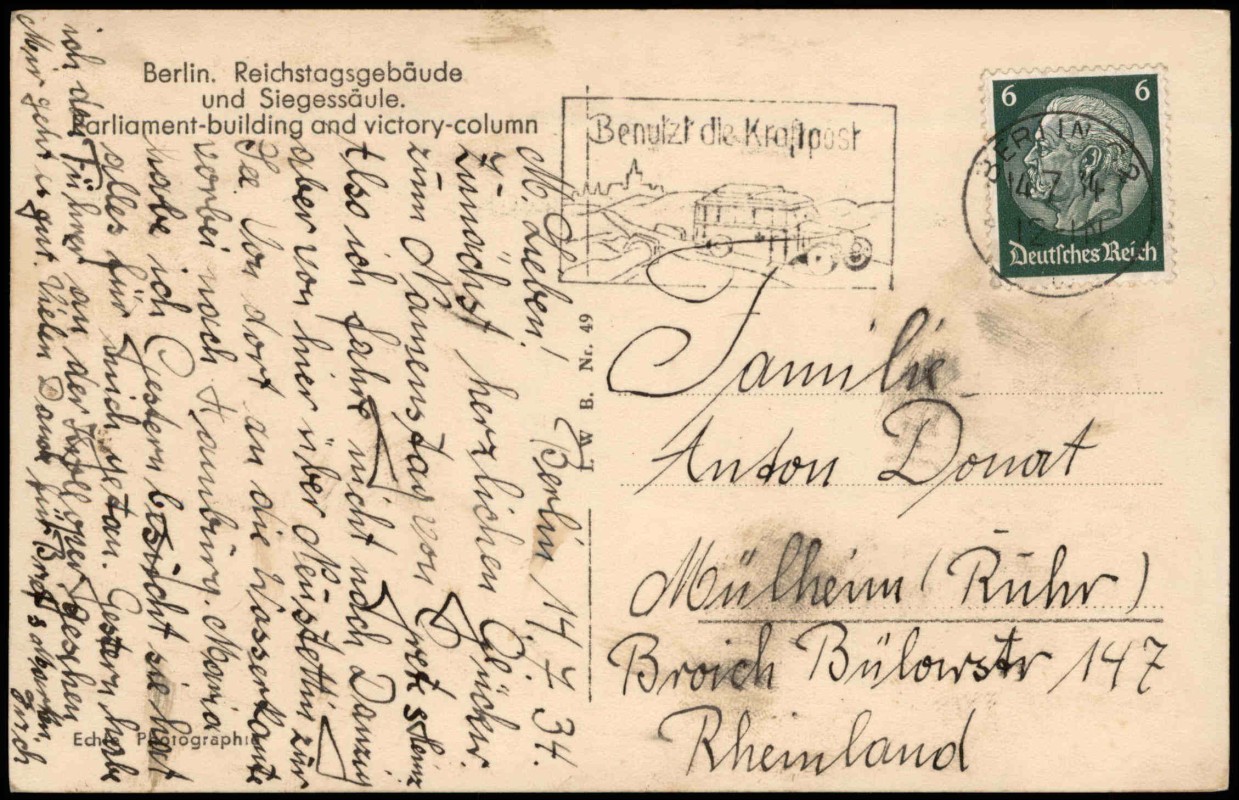 Berlin. Reichstagsgebäude
und Siegessäule.
Parliament-building and victory-column
Benutzt die Kraftpost
6 6
BERLIN
14.7.34
Deutsches Reich
B. Nr. 49
Berlin 14 7 34.
M. Lieben!
Zunächst herzlichen Glückw.
zum Namenstag von
Also ich fahre nicht nach Danzig
aber von hier über Neustettin zur
See Von dort an die Wasserkante
vorbei nach Hamburg. Maria
habe ich Gestern besucht sie hat
alles für mich getan. Gestern habe
ich den Führer an der Kroll oper gesehen
Mir geht es gut. Vielen Dank für
Familie
Anton Donat
Mülheim (Ruhr)
Broich Bülowstr 147
Rheinland
Echte Photographie